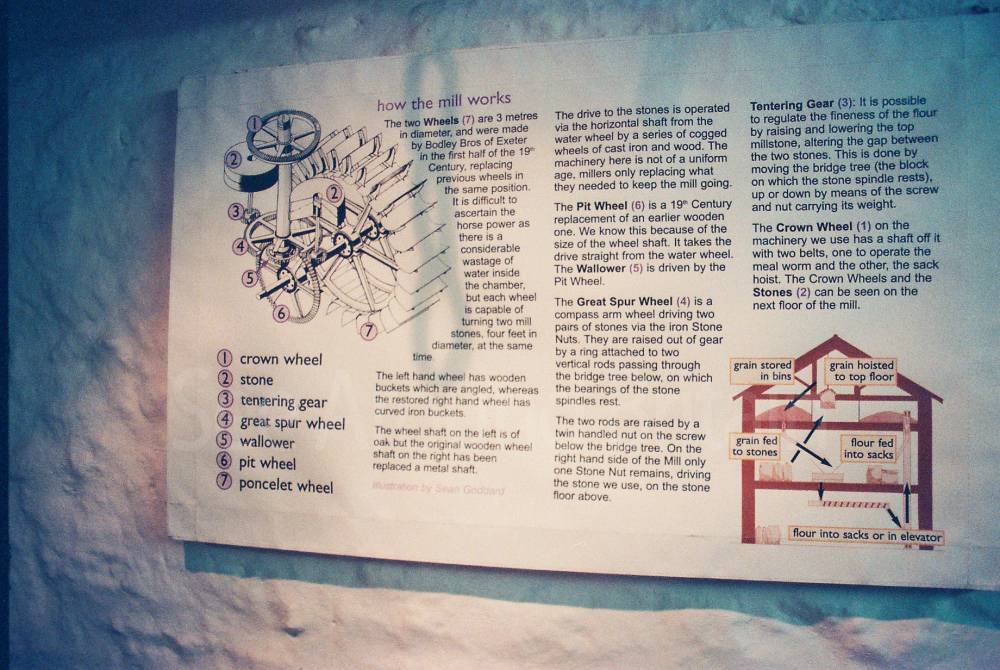 how the mill works
1
2
2
3
4
5
6
7
The two Wheels (7) are 3 metres
in diameter, and were made
by Bodley Bros of Exeter
in the first half of the 19th
Century, replacing
previous wheels in
the same position.
It is difficult to
ascertain the
horse power as
there is a
considerable
wastage of
water inside
the chamber,
but each wheel
is capable of
turning two mill
stones, four feet in
diameter, at the same
time.
The left hand wheel has wooden
buckets which are angled, whereas
the restored right hand wheel has
curved iron buckets.
The wheel shaft on the left is of
oak but the original wooden wheel
shaft on the right has been
replaced a metal shaft.
Illustration by Sean Goddard
1 crown wheel
2 stone
3 tentering gear
4 great spur wheel
5 wallower
6 pit wheel
7 poncelet wheel
The drive to the stones is operated
via the horizontal shaft from the
water wheel by a series of cogged
wheels of cast iron and wood. The
machinery here is not of a uniform
age, millers only replacing what
they needed to keep the mill going.
The Pit Wheel (6) is a 19th Century
replacement of an earlier wooden
one. We know this because of the
size of the wheel shaft. It takes the
drive straight from the water wheel.
The Wallower (5) is driven by the
Pit Wheel.
The Great Spur Wheel (4) is a
compass arm wheel driving two
pairs of stones via the iron Stone
Nuts. They are raised out of gear
by a ring attached to two
vertical rods passing through
the bridge tree below, on which
the bearings of the stone
spindles rest.
The two rods are raised by a
twin handled nut on the screw
below the bridge tree. On the
right hand side of the Mill only
one Stone Nut remains, driving
the stone we use, on the stone
floor above.
Tentering Gear (3): It is possible
to regulate the fineness of the flour
by raising and lowering the top
millstone, altering the gap between
the two stones. This is done by
moving the bridge tree (the block
on which the stone spindle rests),
up or down by means of the screw
and nut carrying its weight.
The Crown Wheel (1) on the
machinery we use has a shaft off it
with two belts, one to operate the
meal worm and the other, the sack
hoist. The Crown Wheels and the
Stones (2) can be seen on the
next floor of the mill.
grain stored
in bins
grain hoisted
to top floor
grain fed
to stones
flour fed
into sacks
flour into sacks or in elevator